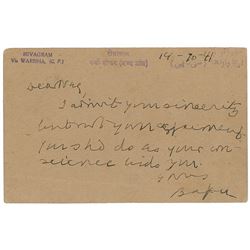 SEVAGRAM
Via WARDHA, (C. P.)
सेवाग्राम
14-10-41
Dear Nag,
I admit your sincerity
but not your argument.
You shd do as your con-
science bids you.
Yours
Bapu